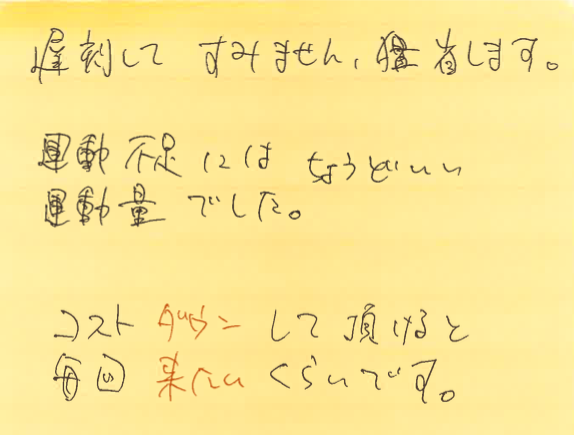 遅刻して すみません、猛省します。
運動不足には ちょうどいい
運動量でした。
コストダウンして頂けると
毎回来たいくらいです。